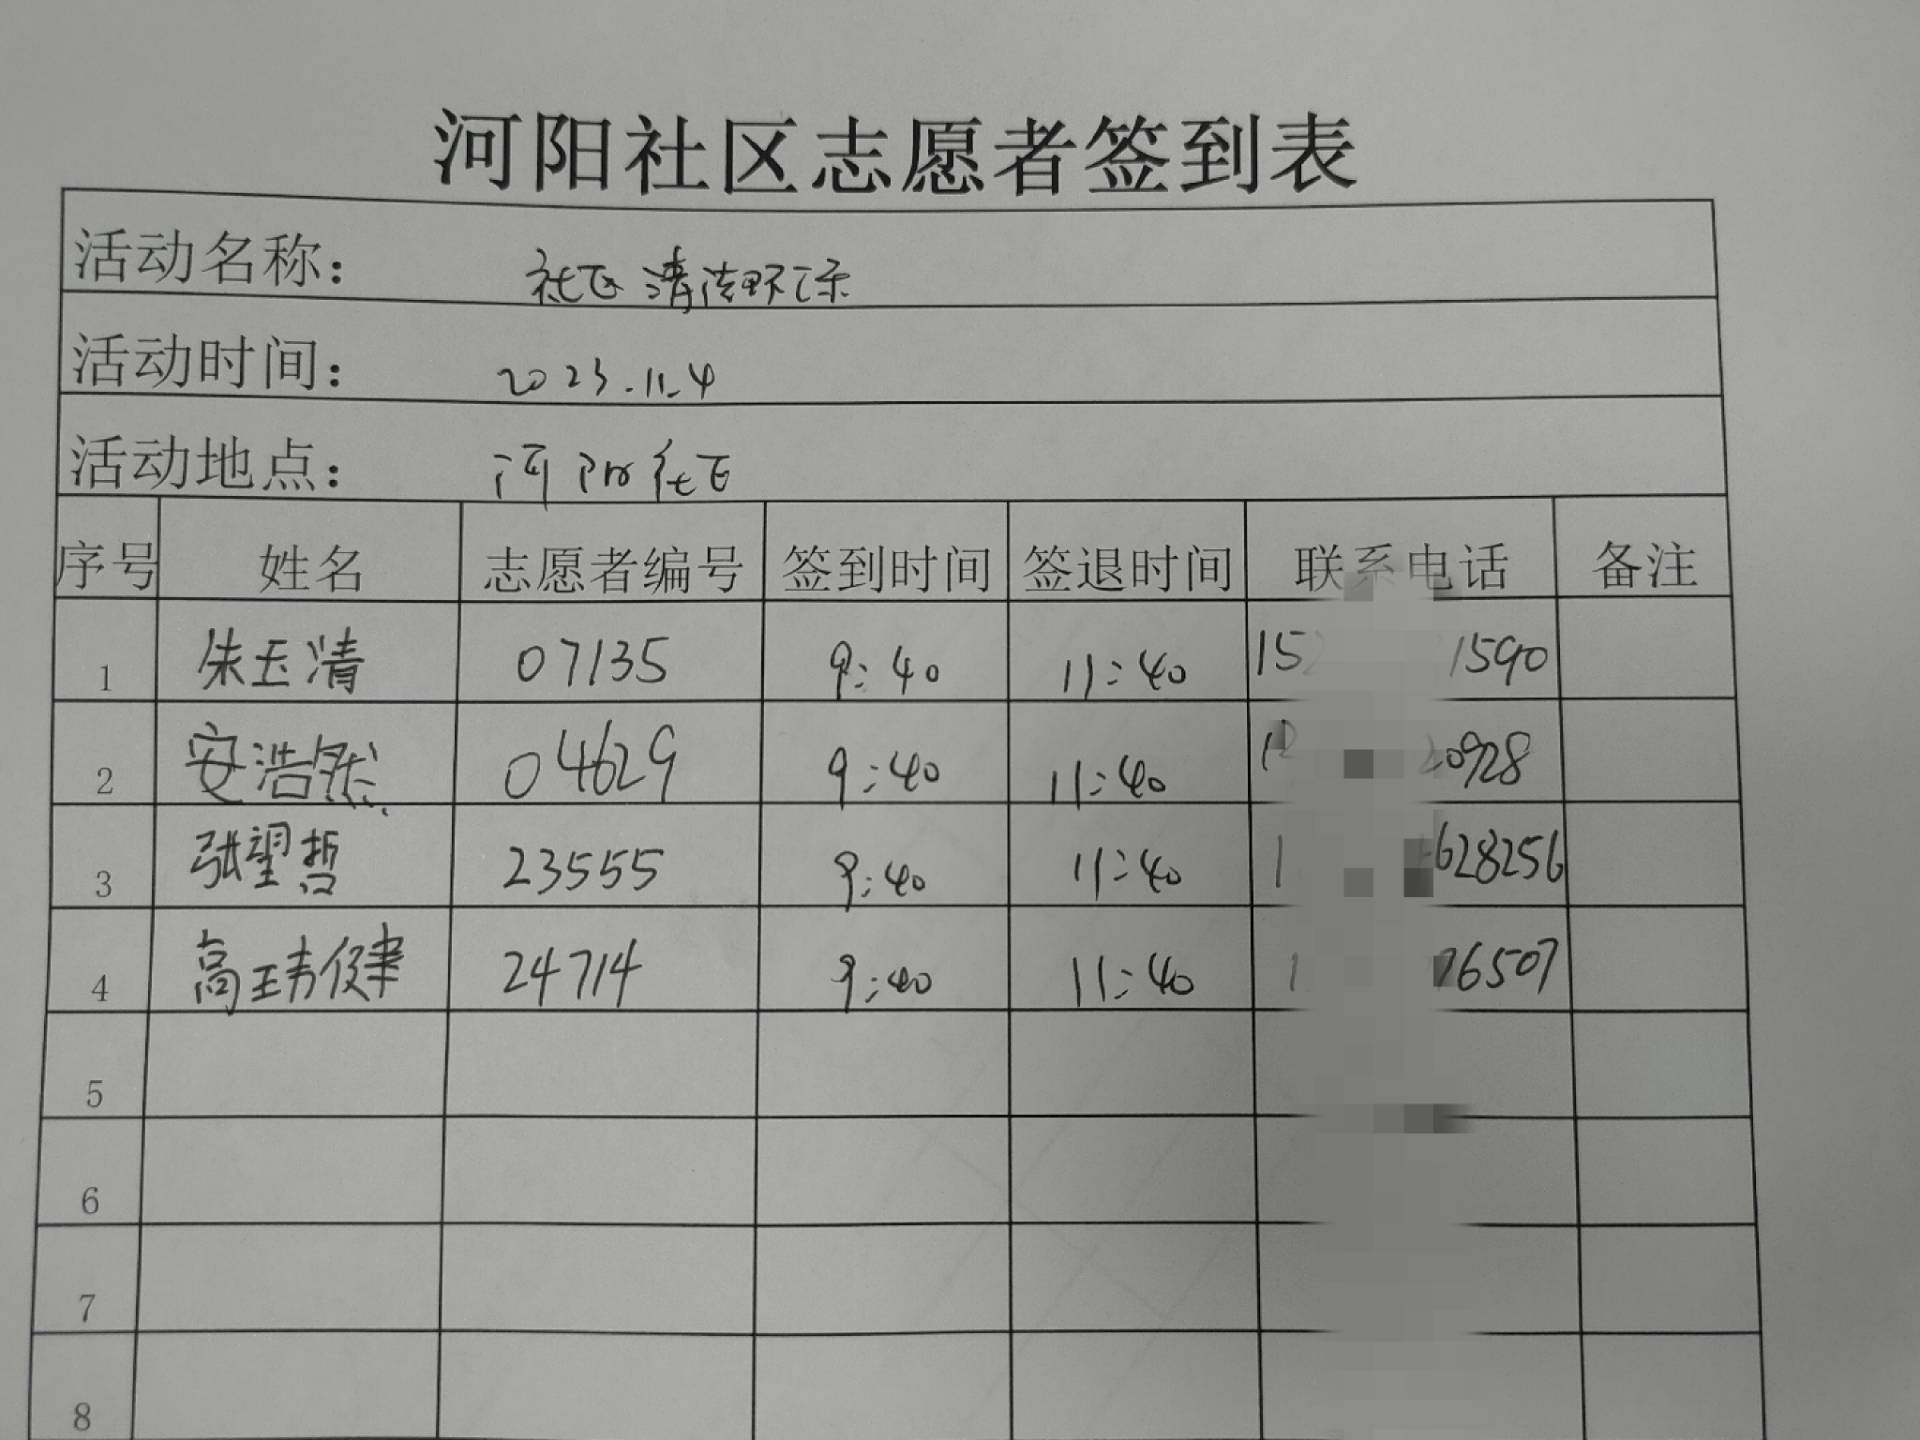 河阳社区志愿者签到表
活动名称： 社区清洁环保
活动时间： 2023.11.4
活动地点： 河阳社区
序号 姓名 志愿者编号 签到时间 签退时间 联系电话 备注
1 朱玉清 07135 9:40 11:40 15 1590
2 安浩然 04629 9:40 11:40 1 20928
3 张望哲 23555 9:40 11:40 1 628256
4 高玮健 24714 9:40 11:40 1 76507
5
6
7
8